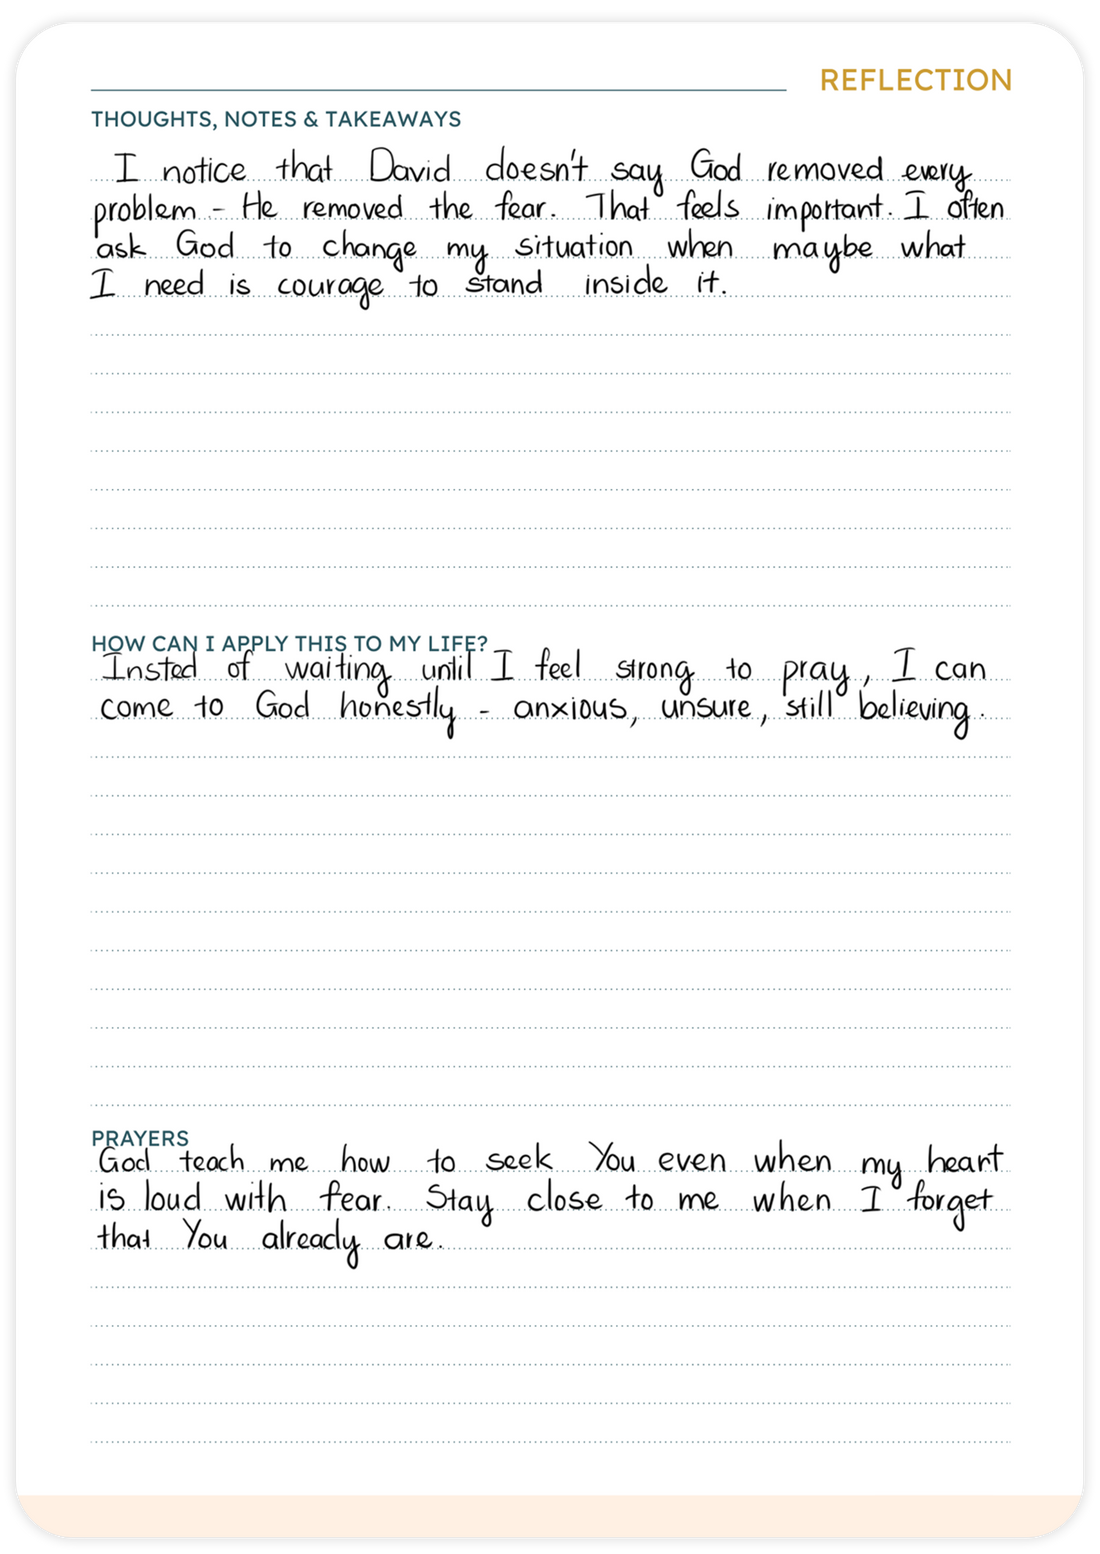 REFLECTION
THOUGHTS, NOTES & TAKEAWAYS
I notice that David doesn't say God removed every
problem - He removed the fear. That feels important. I often
ask God to change my situation when maybe what
I need is courage to stand inside it.
HOW CAN I APPLY THIS TO MY LIFE?
Insted of waiting until I feel strong to pray, I can
come to God honestly - anxious, unsure, still believing.
PRAYERS
God teach me how to seek You even when my heart
is loud with fear. Stay close to me when I forget
that You already are.